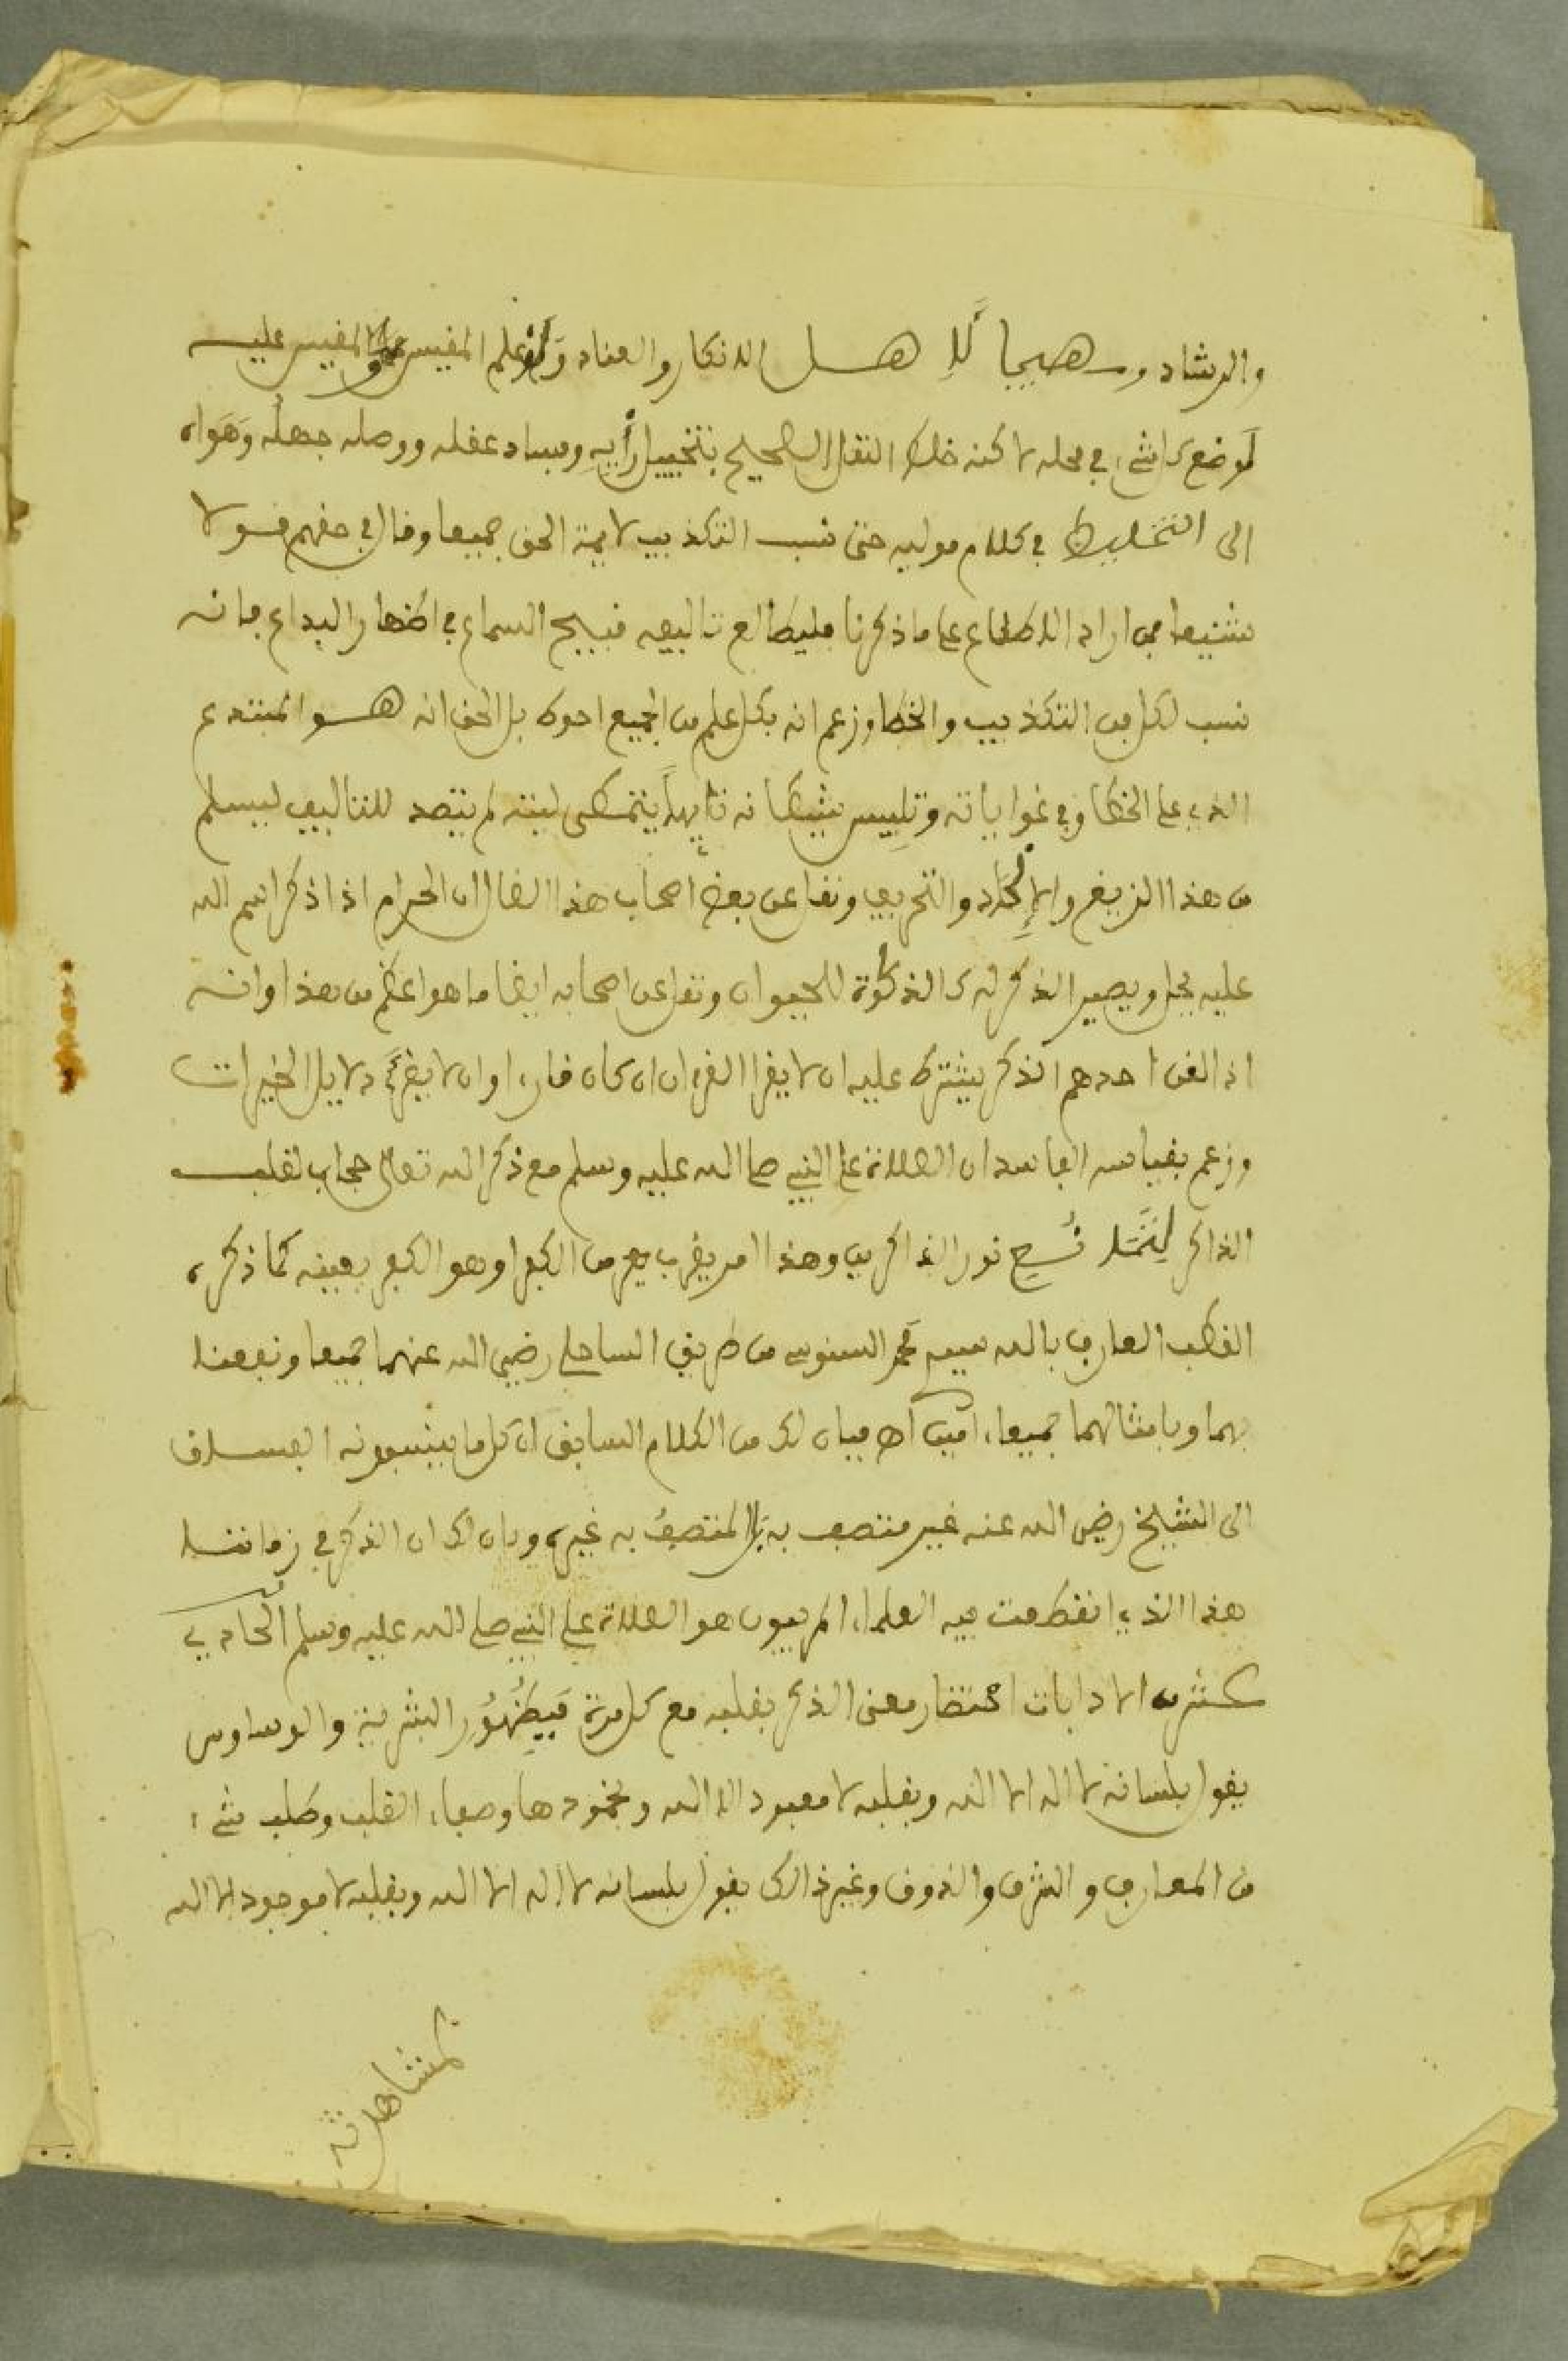 والرشاد وسهيجا للاهل الانكار والعناد ولو علم المقيس والمقيس عليه
لوضع كل شيء في محله لاكنه خلط النقل الصحيح بتخييل رأيه وفساد عقله ووصله جهله وهواه
الى التخليط في كلام موليه حتى نسب التكذيب لايمة الحق جميعا وقال في حقهم قولا
شنيعا فمن اراد الاطلاع على ما ذكرنا فليطالع تاليفه قبيح السماع في اظهار البداع فانه
نسب لكل من التكذيب والخطا وزعم انه بكل علم من الجميع احوط بل الحق انه هو المبتدع
الذي على الخطا وفي غواياته وتلبيس شيطانه تايها يتمطى ليته لم يتصد للتاليف ليسلم
من هذا الزيغ والإلحاد والتحريف ونقل عن بعض أصحاب هذا الضال ان الحرام اذا ذكر اسم الله
عليه يحل ويصير الذكر له كالذكاة للحيوان ونقل عن اصحابه ايضا ما هو اعظم من هذا وانه
اذا لقن احدهم الذكر يشترط عليه ان لا يقرا القرءان ان كان قار، او ان لا يقرأ دلايل الخيرات
وزعم بقياسه الفاسد ان الصلاة على النبي صلى الله عليه وسلم مع ذكر الله تعالى حجاب لقلب
الذاكر نسخ نور الذاكرين وهذا امر يقرب من الكفر او هو الكفر بعينه كما ذكره
القطب العارف بالله سيد محمد السنوسي من طريق الساحلي رضي الله عنهما جميعا ونفعنا
بهما وبامثالهما جميعا، امين اهـ فبان لك من الكلام السابق ان كل ما ينسبونه الفساق
الى الشيخ رضي الله عنه غير متصف به بل المتصف به غيره وبان لك ان الذكر في زماننا
هذا الذي انقطعت فيه العلماء المربيون هو الصلاة على النبي صلى الله عليه وسلم الحادي
عشر من الادابات احتضار معنى الذكر بقلبه مع كل مرة فبظهور البشرية والوساوس
يقول بلسانه لا اله الا الله وبقلبه لا معبود الا الله وبخمودها وصفاء القلب وطلب شيء
من المعارف والشرف والذوق وغير ذالك يقول بلسانه لا إله الا الله وبقلبه لا موجود الا الله
لمشاهدته